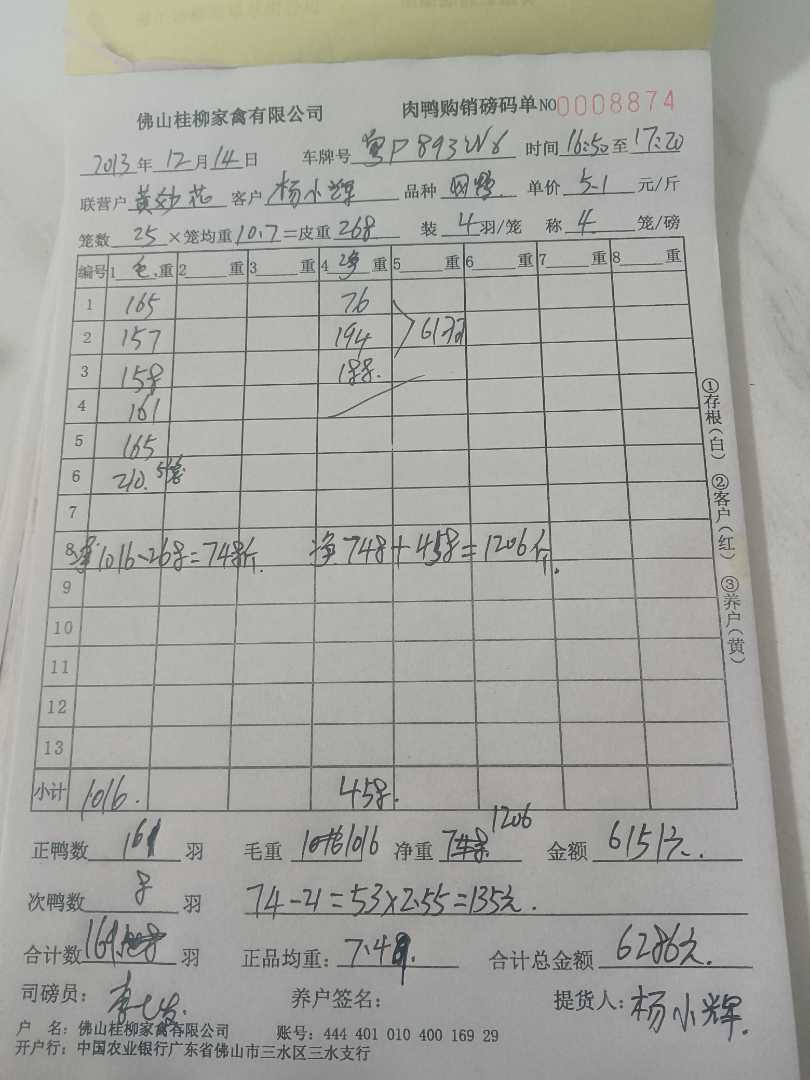 佛山桂柳家禽有限公司 肉鸭购销磅码单 NO0008874
2013年12月14日 车牌号 粤P893W6 时间16:50至17:20
联营户 黄妙花 客户 杨小辉 品种 单价 5.1 元/斤
笼数 25 ×笼均重 10.7 =皮重 268 装 4 羽/笼 称 4 笼/磅
编号 1 毛重 2 重 3 重 4 净重 5 重 6 重 7 重 8 重
1 165 76
2 157 194 61羽
3 158 188.
4 161
5 165
6 210. 5笼
7
8 净1016-268=748斤. 净 748+458=1206斤.
9
10
11
12
13
小计 1016. 458.
正鸭数 161 羽 毛重 1016 净重 1206 金额 6151元.
次鸭数 8 羽 74-21=53×2.55=135元.
合计数 169 羽 正品均重: 7.49. 合计总金额 6286元.
司磅员: 养户签名: 提货人: 杨小辉.
户 名: 佛山桂柳家禽有限公司 账号: 444 401 010 400 169 29
开户行: 中国农业银行广东省佛山市三水区三水支行
①存根(白) ②客户(红) ③养户(黄)